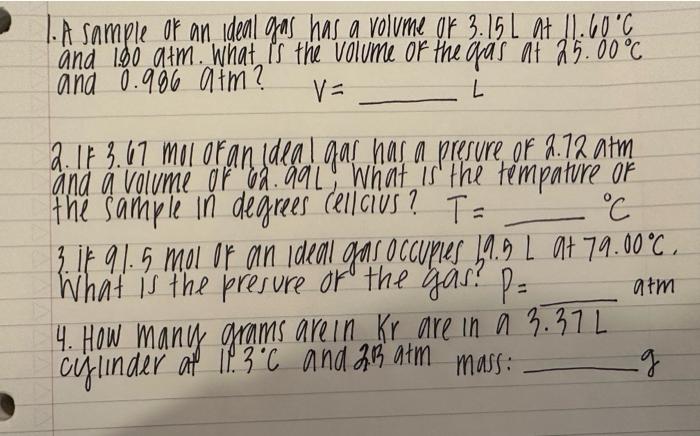 1. A sample of an ideal gas has a volume of 3.15 L at 11.60°C
and 1.80 atm. What is the volume of the gas at 25.00°C
and 0.986 atm? V= ____ L
2. If 3.67 mol of an ideal gas has a presure of 2.72 atm
and a volume of 62.99L, What is the tempature of
the sample in degrees cellcius? T= ____ °C
3. if 91.5 mol of an ideal gas occupies 19.5 L at 79.00°C.
What is the presure of the gas? P= ____ atm
4. How many grams are in Kr are in a 3.37 L
cylinder at 11.3°C and atm mass: ____ g